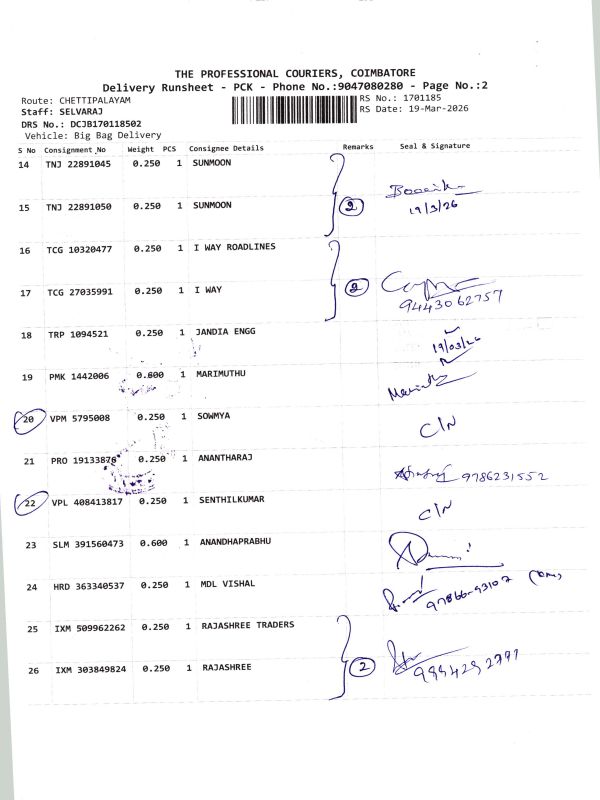 THE PROFESSIONAL COURIERS, COIMBATORE
Delivery Runsheet - PCK - Phone No.:9047080280 - Page No.:2
Route: CHETTIPALAYAM RS No.: 1701185
Staff: SELVARAJ RS Date: 19-Mar-2026
DRS No.: DCJB170118502
Vehicle: Big Bag Delivery
S No Consignment_No Weight PCS Consignee Details Remarks Seal & Signature
14 TNJ 22891045 0.250 1 SUNMOON
15 TNJ 22891050 0.250 1 SUNMOON 2 19/3/26
16 TCG 10320477 0.250 1 I WAY ROADLINES
17 TCG 27035991 0.250 1 I WAY 2
9443062757
18 TRP 1094521 0.250 1 JANDIA ENGG
19/03/26
19 PMK 1442006 0.600 1 MARIMUTHU
20 VPM 5795008 0.250 1 SOWMYA C/N
21 PRO 19133876 0.250 1 ANANTHARAJ 9786231552
22 VPL 408413817 0.250 1 SENTHILKUMAR C/N
23 SLM 391560473 0.600 1 ANANDHAPRABHU
24 HRD 363340537 0.250 1 MDL VISHAL
25 IXM 509962262 0.250 1 RAJASHREE TRADERS
26 IXM 303849824 0.250 1 RAJASHREE 2